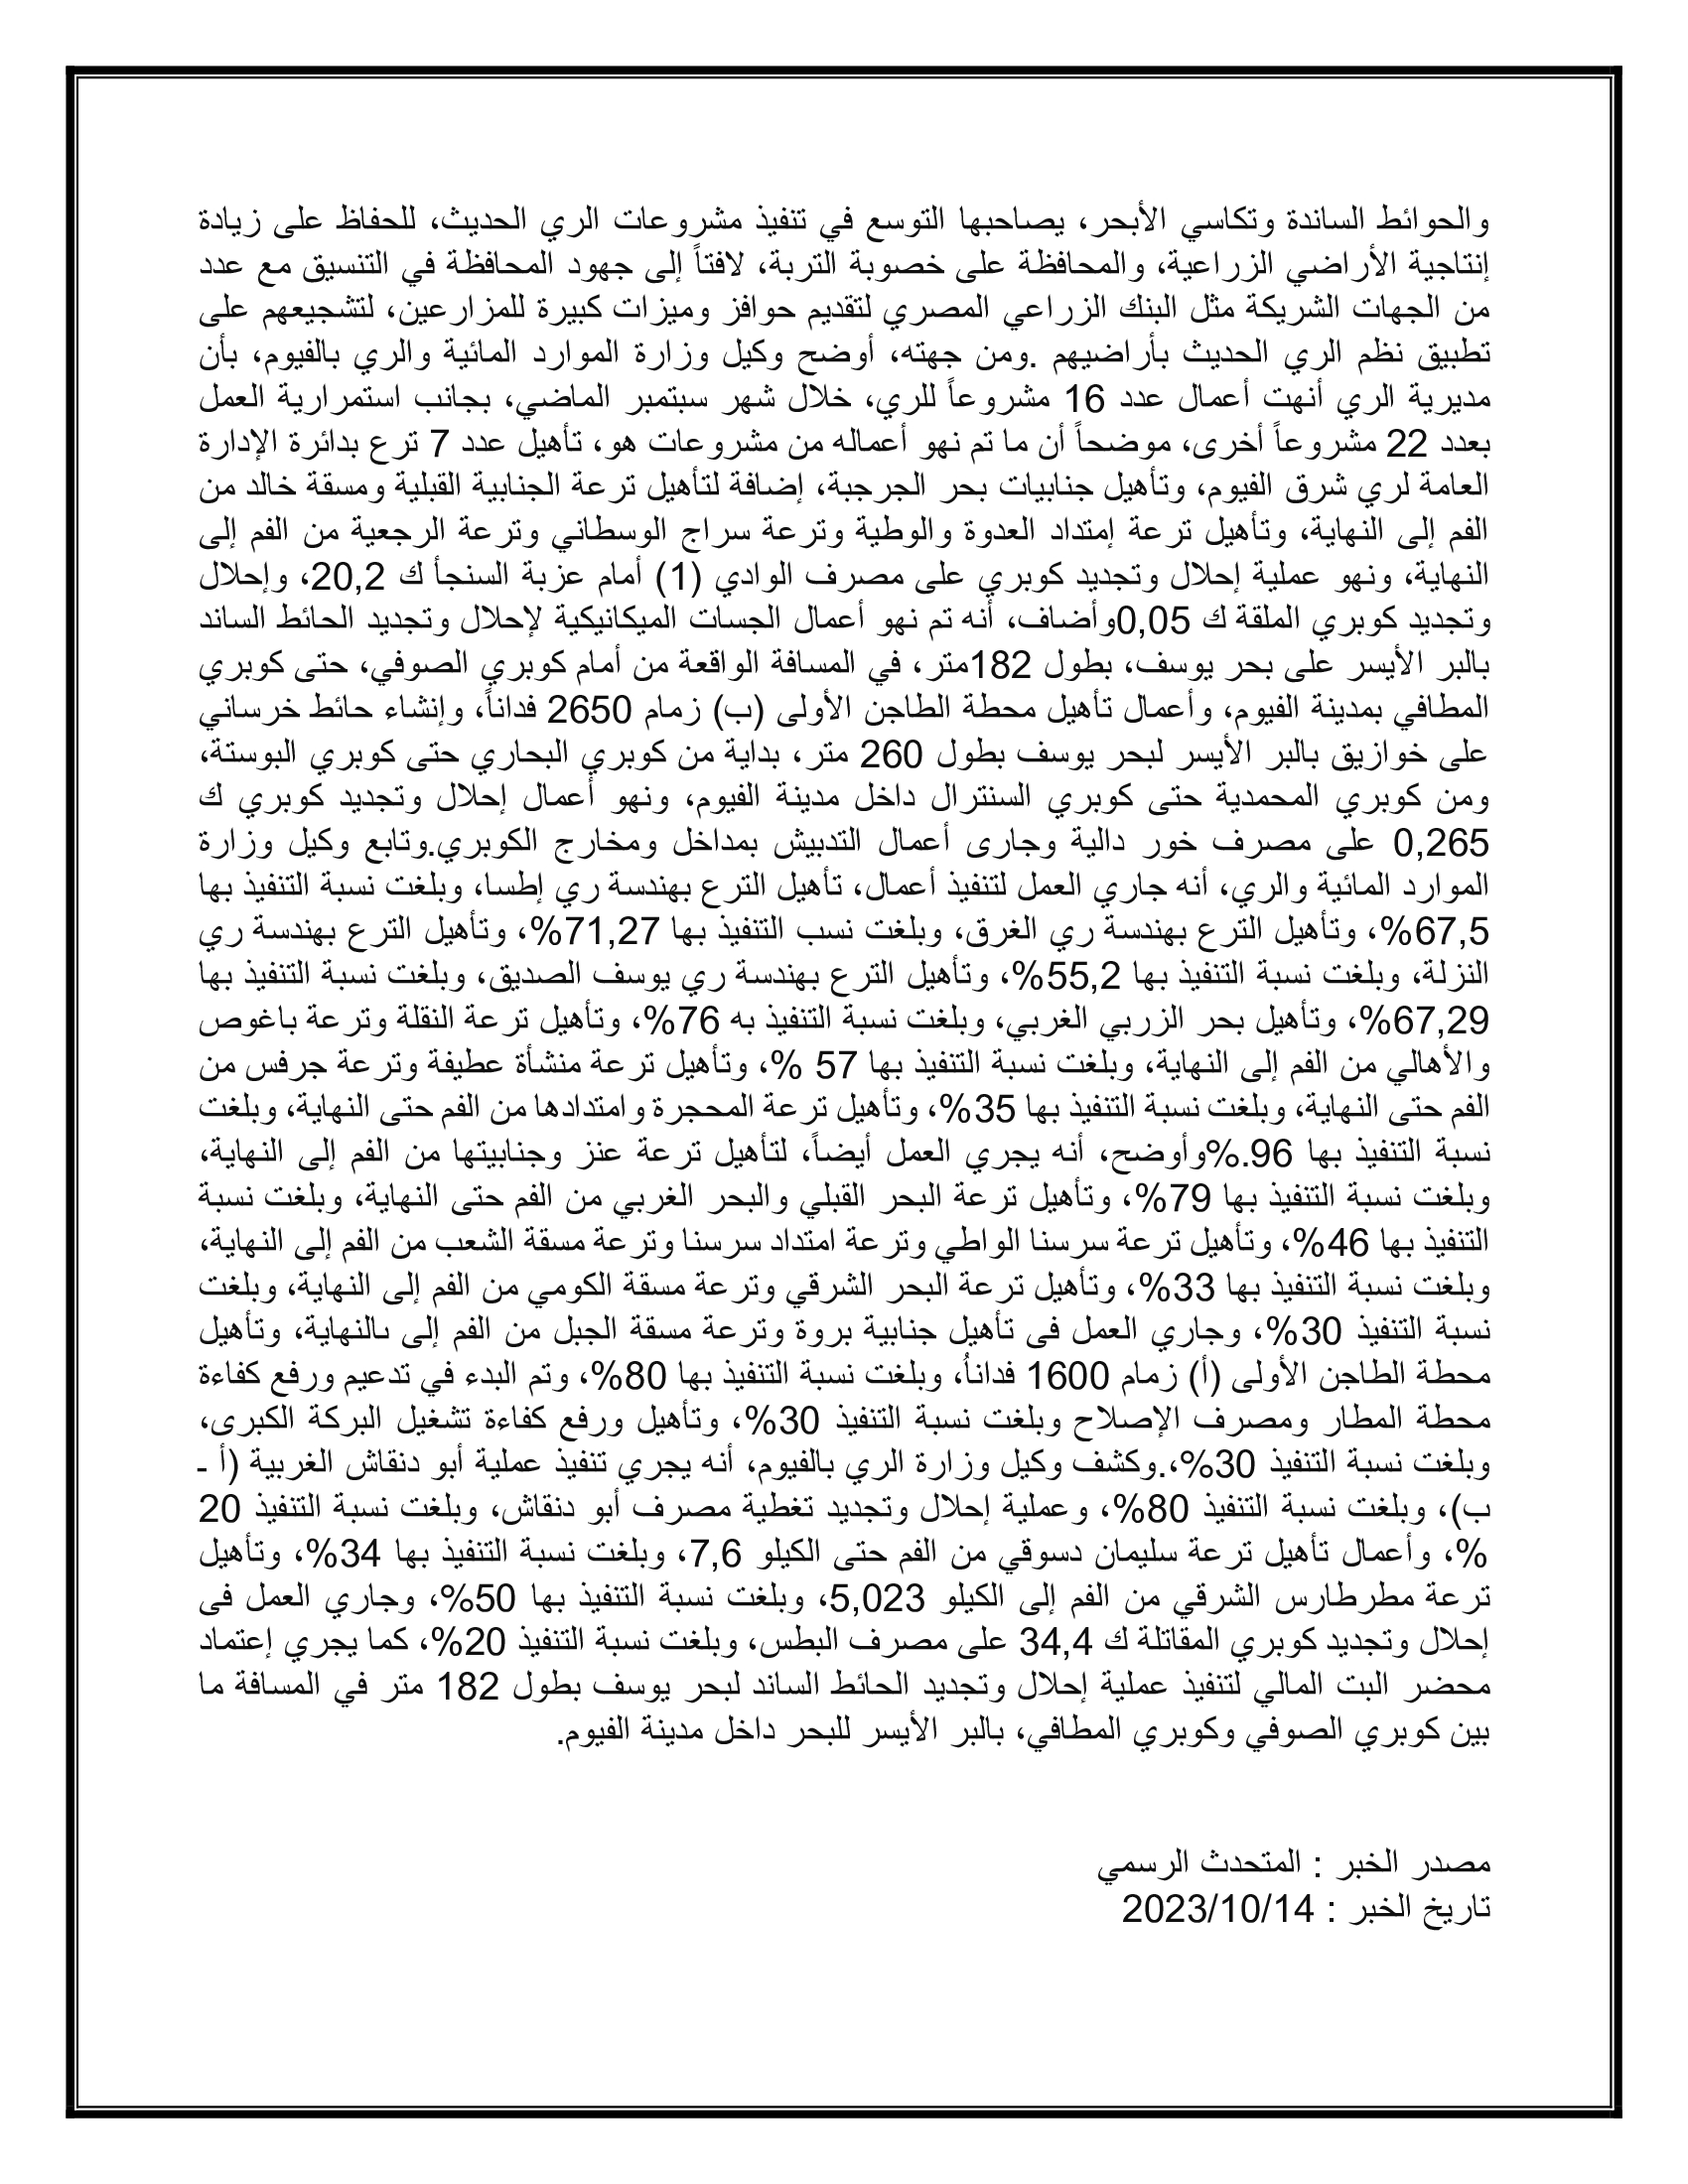 والحوائط الساندة وتكاسي الأبحر، يصاحبها التوسع في تنفيذ مشروعات الري الحديث، للحفاظ على زيادة
إنتاجية الأراضي الزراعية، والمحافظة على خصوبة التربة، لافتاً إلى جهود المحافظة في التنسيق مع عدد
من الجهات الشريكة مثل البنك الزراعي المصري لتقديم حوافز وميزات كبيرة للمزارعين، لتشجيعهم على
تطبيق نظم الري الحديث بأراضيهم .ومن جهته، أوضح وكيل وزارة الموارد المائية والري بالفيوم، بأن
مديرية الري أنهت أعمال عدد 16 مشروعاً للري، خلال شهر سبتمبر الماضي، بجانب استمرارية العمل
بعدد 22 مشروعاً أخرى، موضحاً أن ما تم نهو أعماله من مشروعات هو، تأهيل عدد 7 ترع بدائرة الإدارة
العامة لري شرق الفيوم، وتأهيل جنابيات بحر الجرجبة، إضافة لتأهيل ترعة الجنابية القبلية ومسقة خالد من
الفم إلى النهاية، وتأهيل ترعة إمتداد العدوة والوطية وترعة سراج الوسطاني وترعة الرجعية من الفم إلى
النهاية، ونهو عملية إحلال وتجديد كوبري على مصرف الوادي (1) أمام عزبة السنجأ ك 20,2، وإحلال
وتجديد كوبري الملقة ك 0,05وأضاف، أنه تم نهو أعمال الجسات الميكانيكية لإحلال وتجديد الحائط الساند
بالبر الأيسر على بحر يوسف، بطول 182متر، في المسافة الواقعة من أمام كوبري الصوفي، حتى كوبري
المطافي بمدينة الفيوم، وأعمال تأهيل محطة الطاجن الأولى (ب) زمام 2650 فداناً، وإنشاء حائط خرساني
على خوازيق بالبر الأيسر لبحر يوسف بطول 260 متر، بداية من كوبري البحاري حتى كوبري البوستة،
ومن كوبري المحمدية حتى كوبري السنترال داخل مدينة الفيوم، ونهو أعمال إحلال وتجديد كوبري ك
0,265 على مصرف خور دالية وجارى أعمال التدبيش بمداخل ومخارج الكوبري.وتابع وكيل وزارة
الموارد المائية والري، أنه جاري العمل لتنفيذ أعمال، تأهيل الترع بهندسة ري إطسا، وبلغت نسبة التنفيذ بها
67,5%، وتأهيل الترع بهندسة ري الغرق، وبلغت نسب التنفيذ بها 71,27%، وتأهيل الترع بهندسة ري
النزلة، وبلغت نسبة التنفيذ بها 55,2%، وتأهيل الترع بهندسة ري يوسف الصديق، وبلغت نسبة التنفيذ بها
67,29%، وتأهيل بحر الزربي الغربي، وبلغت نسبة التنفيذ به 76%، وتأهيل ترعة النقلة وترعة باغوص
والأهالي من الفم إلى النهاية، وبلغت نسبة التنفيذ بها 57 %، وتأهيل ترعة منشأة عطيفة وترعة جرفس من
الفم حتى النهاية، وبلغت نسبة التنفيذ بها 35%، وتأهيل ترعة المحجرة وامتدادها من الفم حتى النهاية، وبلغت
نسبة التنفيذ بها 96.%وأوضح، أنه يجري العمل أيضاً، لتأهيل ترعة عنز وجنابيتها من الفم إلى النهاية،
وبلغت نسبة التنفيذ بها 79%، وتأهيل ترعة البحر القبلي والبحر الغربي من الفم حتى النهاية، وبلغت نسبة
التنفيذ بها 46%، وتأهيل ترعة سرسنا الواطي وترعة امتداد سرسنا وترعة مسقة الشعب من الفم إلى النهاية،
وبلغت نسبة التنفيذ بها 33%، وتأهيل ترعة البحر الشرقي وترعة مسقة الكومي من الفم إلى النهاية، وبلغت
نسبة التنفيذ 30%، وجاري العمل فى تأهيل جنابية بروة وترعة مسقة الجبل من الفم إلى ىالنهاية، وتأهيل
محطة الطاجن الأولى (أ) زمام 1600 فداناُ، وبلغت نسبة التنفيذ بها 80%، وتم البدء في تدعيم ورفع كفاءة
محطة المطار ومصرف الإصلاح وبلغت نسبة التنفيذ 30%، وتأهيل ورفع كفاءة تشغيل البركة الكبرى،
وبلغت نسبة التنفيذ 30%،.وكشف وكيل وزارة الري بالفيوم، أنه يجري تنفيذ عملية أبو دنقاش الغربية (أ ـ
ب)، وبلغت نسبة التنفيذ 80%، وعملية إحلال وتجديد تغطية مصرف أبو دنقاش، وبلغت نسبة التنفيذ 20
%، وأعمال تأهيل ترعة سليمان دسوقي من الفم حتى الكيلو 7,6، وبلغت نسبة التنفيذ بها 34%، وتأهيل
ترعة مطرطارس الشرقي من الفم إلى الكيلو 5,023، وبلغت نسبة التنفيذ بها 50%، وجاري العمل فى
إحلال وتجديد كوبري المقاتلة ك 34,4 على مصرف البطس، وبلغت نسبة التنفيذ 20%، كما يجري إعتماد
محضر البت المالي لتنفيذ عملية إحلال وتجديد الحائط الساند لبحر يوسف بطول 182 متر في المسافة ما
بين كوبري الصوفي وكوبري المطافي، بالبر الأيسر للبحر داخل مدينة الفيوم.
مصدر الخبر : المتحدث الرسمي
تاريخ الخبر : 2023/10/14